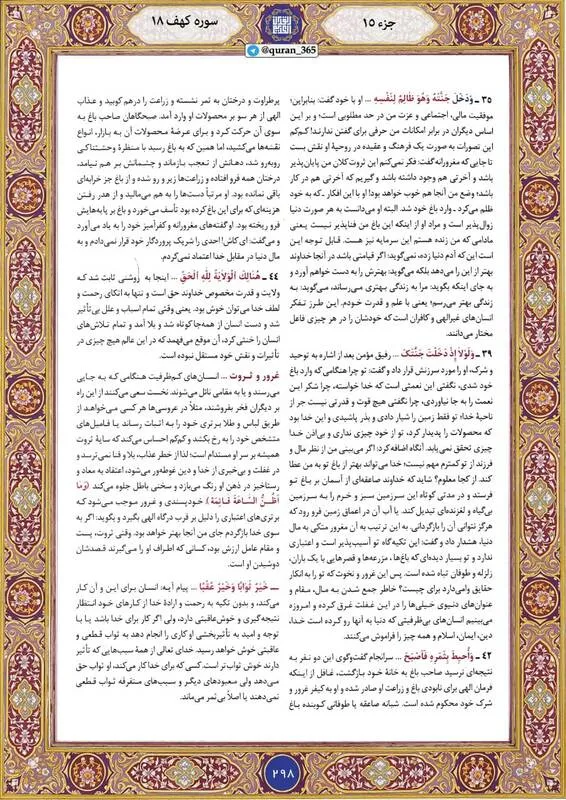 جزء ۱۵
سوره کهف ۱۸
@quran_365
۳۵ ـ وَدَخَلَ جَنَّتَهُ وَهُوَ ظَالِمٌ لِنَفْسِهِ ... او با خود گفت: بنابراین؛
موفقیت مالی، اجتماعی و عزت من در حد مطلوبی است؛ و بر این
اساس دیگران در برابر امکانات من حرفی برای گفتن ندارند! کم‌کم
این تصورات به صورت یک فرهنگ و عقیده در روحیهٔ او نقش بست
تا جایی که مغرورانه گفت: فکر نمی‌کنم این ثروت کلان من پایان‌پذیر
باشد و آخرتی هم وجود داشته باشد و گیریم که آخرتی هم در کار
باشد؛ وضع من آنجا هم خوب خواهد بود! او با این افکار ـ که به خود
ظلم می‌کرد ـ وارد باغ خود شد. البته او می‌دانست به هر صورت دنیا
زوال‌پذیر است و مراد او از اینکه این باغ من فناپذیر نیست یعنی
مادامی که من زنده هستم این سرمایه نیز هست. قابل توجه این
است که آدم دنیا زده، نمی‌گوید: اگر قیامتی باشد در آنجا خداوند
بهتر از این را می‌دهد بلکه می‌گوید: بهترش را به دست خواهم آورد و
به جای اینکه بگوید: مرا به زندگی بهتری می‌رساند، می‌گوید: به
زندگی بهتر می‌رسم؛ یعنی با علم و قدرت خودم. این طرز تفکر
انسان‌های غیرالهی و کافران است که خودشان را در هر چیزی فاعل
مختار می‌دانند.
۳۹ ـ وَلَوْلَا إِذْ دَخَلْتَ جَنَّتَكَ ... رفیق مؤمن بعد از اشاره به توحید
و شرک، او را مورد سرزنش قرار داد و گفت: تو چرا هنگامی که وارد باغ
خود شدی، نگفتی این نعمتی است که خدا خواسته، چرا شکر این
نعمت را به جا نیاوردی، چرا نگفتی هیچ قوت و قدرتی نیست جز از
ناحیهٔ خدا؛ تو فقط زمین را شیار دادی و بذر پاشیدی و این خدا بود
که محصولات را پدیدار کرد، تو از خود چیزی نداری و بی‌اذن خدا
چیزی تحقق نمی‌یابد. آنگاه اضافه کرد: اگر می‌بینی من از نظر مال و
فرزند از تو کمترم مهم نیست؛ خدا می‌تواند بهتر از باغ تو به من عطا
کند. از کجا معلوم؟ شاید که خداوند صاعقه‌ای از آسمان بر باغ تو
فرستد و در مدتی کوتاه این سرزمین سبز و خرم را به سرزمین
بی‌گیاه و لغزنده‌ای تبدیل کند. یا آب آن در اعماق زمین فرو رود که
هرگز نتوانی آن را بازگردانی. به این ترتیب به آن مغرور متکی به مال
دنیا، هشدار داد و گفت: این تکیه‌گاه تو آسیب‌پذیر است و اعتباری
ندارد و تو بسیار دیده‌ای که باغ‌ها، مزرعه‌ها و قصرهایی با یک باران،
زلزله و طوفان تباه شده است. پس این غرور و نخوت که تو را به انکار
حقایق وامی‌دارد برای چیست؟ خاطر جمع شدن به مال، مقام و
عنوان‌های دنیوی خیلی‌ها را در این غفلت غرق کرده و امروزه
می‌بینیم انسان‌های بی‌ظرفیتی که دنیا به آنها رو کرده است خدا،
دین، ایمان، اسلام و همه چیز را فراموش می‌کنند.
۴۲ ـ وَأُحِيطَ بِثَمَرِهِ فَأَصْبَحَ ... سرانجام گفت‌وگوی این دو نفر به
نتیجه‌ای نرسید صاحب باغ به خانهٔ خود بازگشت، غافل از اینکه
فرمان الهی برای نابودی باغ و زراعت او صادر شده و او به کیفر غرور و
شرک خود محکوم شده است. شبانه صاعقه یا طوفانی کوبنده باغ
پرطراوت و درختان به ثمر نشسته و زراعت را درهم کوبید و عذاب
الهی از هر سو بر محصولات او وارد آمد. صبحگاهان صاحب باغ به
سوی آن حرکت کرد و برای عرضهٔ محصولات آن به بازار، انواع
نقشه‌ها می‌کشید، اما همین که به باغ رسید با منظرهٔ وحشتناکی
روبه‌رو شد، دهانش از تعجب بازماند و چشمانش بر هم نیامد.
درختان همه فرو افتاده و زراعت‌ها زیر و رو شده و از باغ جز خرابه‌ای
باقی نمانده بود. او مرتباً دست‌ها را به هم می‌مالید و از هدر رفتن
هزینه‌ای که برای این باغ کرده بود تأسف می‌خورد و باغ بر پایه‌هایش
فرو ریخته بود. او گفته‌های مغرورانه و کفرآمیز خود را به یاد می‌آورد
و می‌گفت: ای کاش! احدی را شریک پروردگار خود قرار نمی‌دادم و به
مال دنیا در مقابل خدا اعتماد نمی‌کردم.
۴۴ ـ هُنَالِكَ الْوَلَايَةُ لِلَّهِ الْحَقِّ ... اینجا به روشنی ثابت شد که
ولایت و قدرت مخصوص خداوند حق است و تنها به اتکای رحمت و
لطف خدا می‌توان خوش بود. یعنی وقتی تمام اسباب و علل بی‌تأثیر
شد و دست انسان از همه‌جا کوتاه شد و بلا آمد و تمام تلاش‌های
انسان را خنثی کرد، آن موقع می‌فهمد که در این عالم هیچ چیزی در
تأثیرات و نقش خود مستقل نبوده است.
غرور و ثروت ... انسان‌های کم‌ظرفیت هنگامی که به جایی
می‌رسند و یا به مقامی نائل می‌شوند. نخست سعی می‌کنند از این راه
بر دیگران فخر بفروشند، مثلاً در عروسی‌ها هر کسی می‌خواهد از
طریق لباس و طلا برتری خود را به اثبات رساند یا فامیل‌های
متشخص خود را به رخ بکشد و کم‌کم احساس می‌کند که سایهٔ ثروت
همیشه بر سر او مستدام است؛ لذا از خطر عذاب، بلا و فنا نمی‌ترسد و
در غفلت و بی‌خبری از خدا و دین غوطه‌ور می‌شود، اعتقاد به معاد و
رستاخیز در ذهن او رنگ می‌بازد و سخنی باطل جلوه می‌کند (وَمَا
أَظُنُّ السَّاعَةَ قَائِمَةً)، خودپسندی و غرور موجب می‌شود که
برتری‌های اعتباری را دلیل بر قرب درگاه الهی بگیرد و بگوید: اگر به
سوی خدا بازگردم جای من آنجا بهتر خواهد بود. وقتی ثروت، پست
و مقام عامل ارزش بود، کسانی که اطراف او را می‌گیرند قصدشان
دوشیدن او است.
ـــ خَيْرٌ ثَوَابًا وَخَيْرٌ عُقْبًا ... پیام آیه: انسان برای این و آن کار
می‌کند، و بدون تکیه به رحمت و ارادهٔ خدا از کارهای خود انتظار
نتیجه‌گیری و خوش‌عاقبتی دارد، ولی اگر کار برای خدا باشد یا با
توجه و امید به تأثیربخشی او کاری را انجام دهد به ثواب قطعی و
عاقبتی خوش خواهد رسید. خدای تعالی از همهٔ سبب‌هایی که تأثیر
دارند خوش ثواب‌تر است. کسی که برای خدا کار می‌کند، او ثواب حق
می‌دهد ولی معبودهای دیگر و سبب‌های متفرقه ثواب قطعی
نمی‌دهند یا اصلاً بی‌ثمر می‌ماند.
۲۹۸